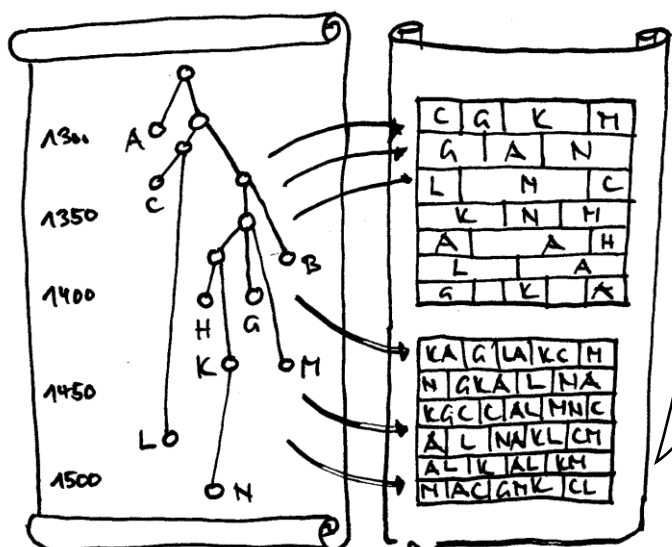 1300 A
C
1350
B
1400
H G
K M
1450
L
1500
N
C G K M
G A N
L M C
K N M
A A H
L A
G K A
KA G LA KC M
N GKA L NA
KGC C AL MN C
A L NA KL CM
AL K AL KM
M AC GMK CL